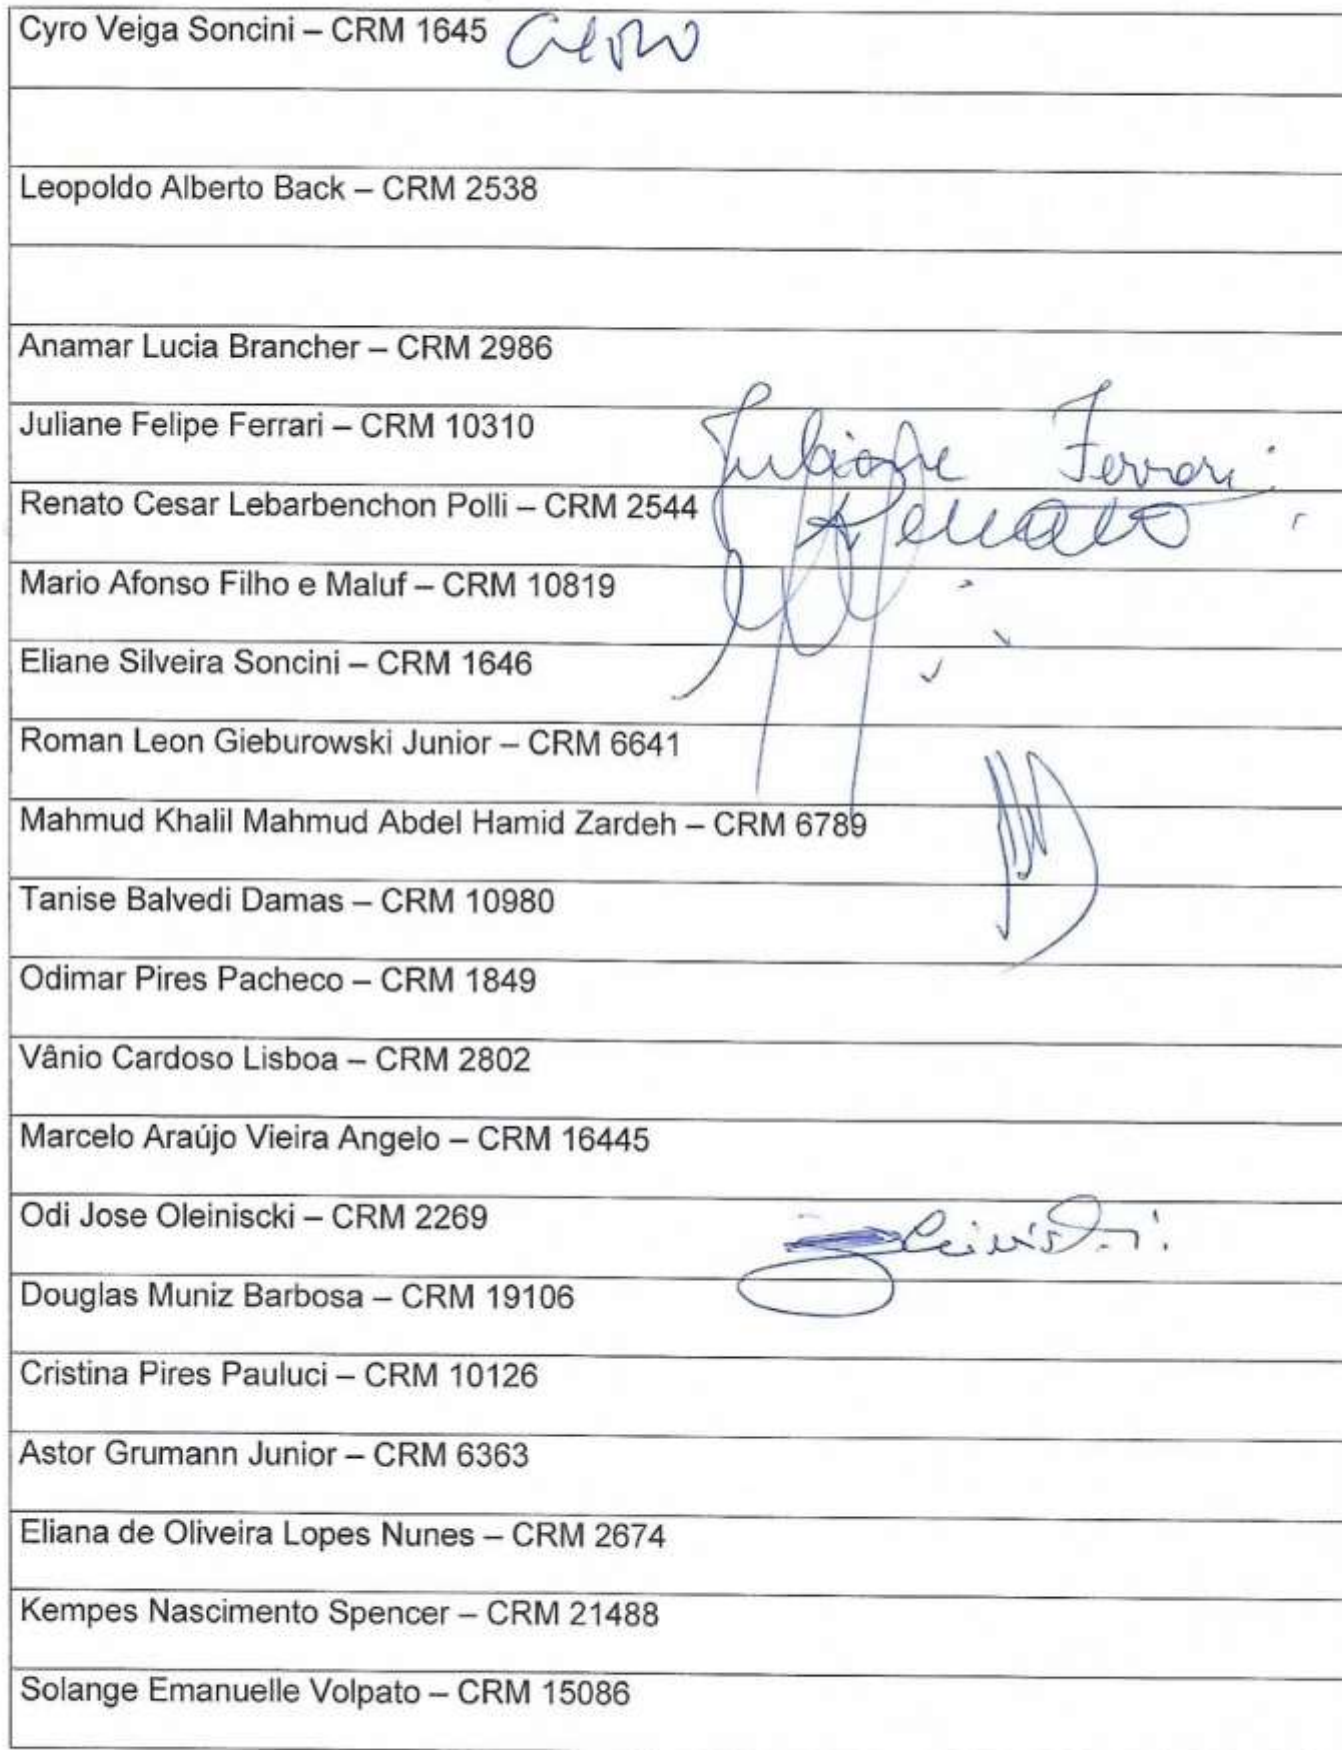 Cyro Veiga Soncini – CRM 1645
Leopoldo Alberto Back – CRM 2538
Anamar Lucia Brancher – CRM 2986
Juliane Felipe Ferrari – CRM 10310 Juliane Ferrari
Renato Cesar Lebarbenchon Polli – CRM 2544 Renato
Mario Afonso Filho e Maluf – CRM 10819
Eliane Silveira Soncini – CRM 1646
Roman Leon Gieburowski Junior – CRM 6641
Mahmud Khalil Mahmud Abdel Hamid Zardeh – CRM 6789
Tanise Balvedi Damas – CRM 10980
Odimar Pires Pacheco – CRM 1849
Vânio Cardoso Lisboa – CRM 2802
Marcelo Araújo Vieira Angelo – CRM 16445
Odi Jose Oleiniscki – CRM 2269
Douglas Muniz Barbosa – CRM 19106
Cristina Pires Pauluci – CRM 10126
Astor Grumann Junior – CRM 6363
Eliana de Oliveira Lopes Nunes – CRM 2674
Kempes Nascimento Spencer – CRM 21488
Solange Emanuelle Volpato – CRM 15086